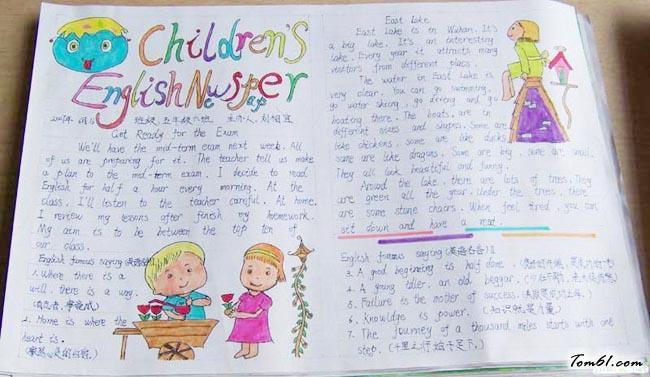 Children's
English Newspaper
Get Ready for the Exam
We'll have the mid-term exam next week. All
of us are preparing for it. The teacher tell us make
a plan to the mid-term exam. I decide to read
English for half a hour every morning. At the
class. I'll listen to the teacher careful. At home.
I review my lessons after finish my homework.
My aim is to be between the top ten of
our class.
English famous saying (英语名言)
1. Where there is a
will. there is a way.
(有志者，事竟成)
2. Home is where the
heart is.
East Lake
East Lake is in Wuhan. It's
a big lake. It's an interesting
lake. Every year it attracts many
visitors from different place.
The water in East Lake is
very clear. You can go swimming,
go water skiing, go driving and go
boating there. The boats, are in
different sizes and shapes. Some are
like chickens, some are like ducks
some are like dragons. Some are big, some are small.
They all look beautiful and funny.
Around the lake, there are lots of trees. They
are green all the year. Under the trees, there
are some stone chairs. When feel tired, you can
sit down and have a rest.
English famous saying (英语名言) II
3. A good beginning is half done.
4. A young idler, an old beggar.
5. Failure is the mother of success. (失败是成功之母)
6. Knowledge is power. (知识就是力量)
7. The journey of a thousand miles starts with one
step. (千里之行始于足下)
Tom61.com